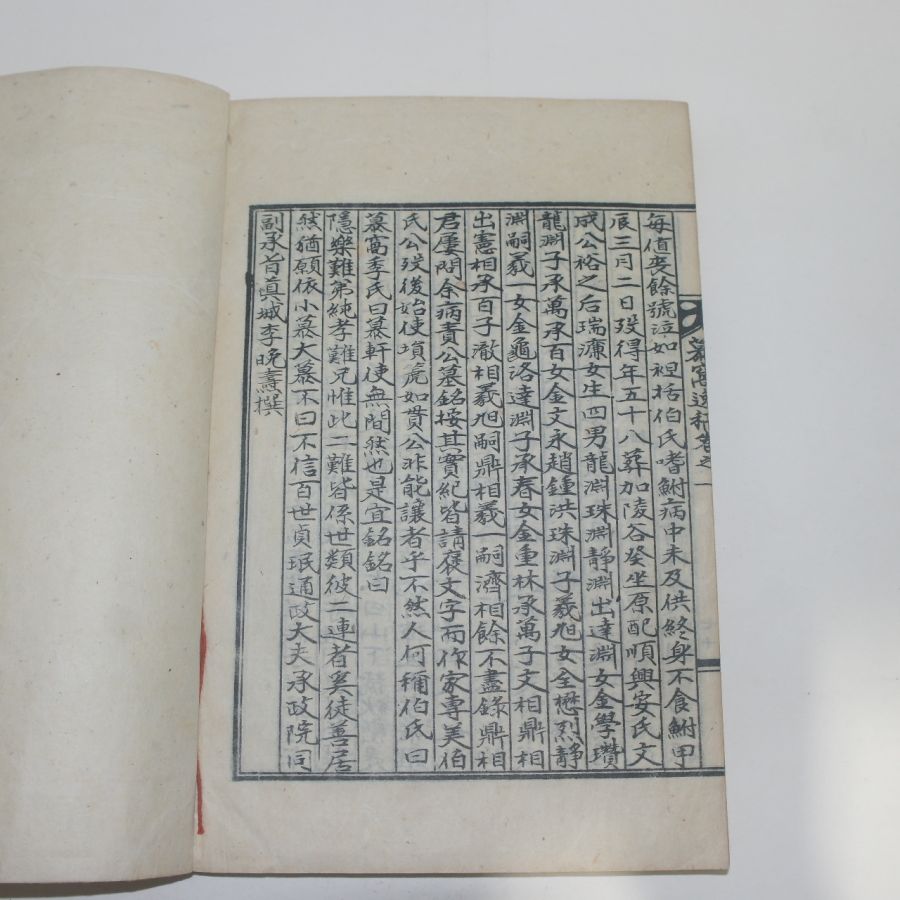 慕窩逸稿卷之一
每值喪餘號泣如袒括伯氏嗜鮒病中未及供終身不食鮒甲
辰三月二日歿得年五十八葬加陵谷癸坐原配順興安氏文
成公裕之后瑞濂女生四男龍淵珠淵靜淵出達淵女金學瓚
龍淵子承萬承百女金文永趙鍾洪珠淵子羲旭女全懋烈靜
淵嗣羲一女金龜洛達淵子承春女金重林承萬子文相鼎相
出憲相承百子澈相羲旭嗣鼎相羲一嗣濟相餘不盡錄鼎相
君屢問余病責公墓銘按其實紀皆請褒文字而作家專美伯
氏公歿後始使塤箎如貫公非能讓者乎不然人何稱伯氏曰
慕窩季氏曰慕軒使無間然也是宜銘銘曰
隱樂難弟純孝難兄惟此二難皆係世類彼二連者奚徒善居
然猶願依小慕大慕不曰不信百世貞珉通政大夫承政院同
副承旨眞城李晚燾撰